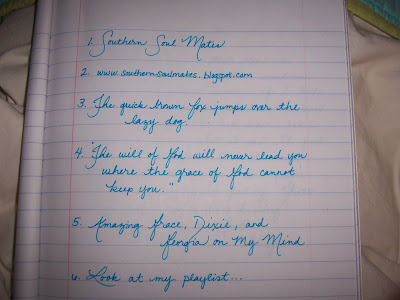 1. Southern Soul Mates
2. www.southern-soulmates.blogspot.com
3. The quick brown fox jumps over the
lazy dog.
4. "The will of God will never lead you
where the grace of God cannot
keep you."
5. Amazing Grace, Dixie, and
Georgia on My Mind
6. Look at my playlist...